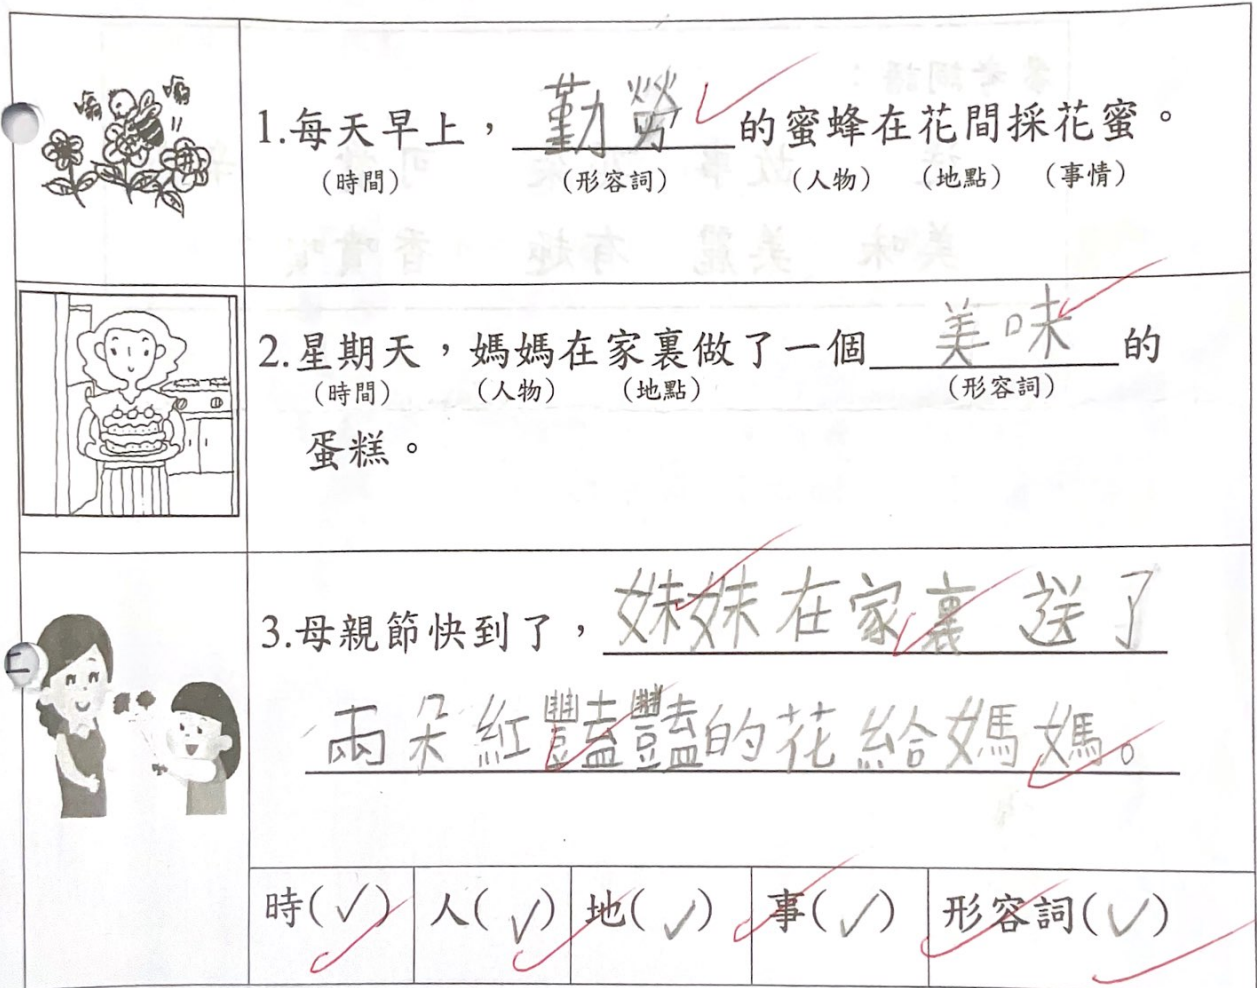 1.每天早上，勤勞的蜜蜂在花間採花蜜。
(時間) (形容詞) (人物) (地點) (事情)
2.星期天，媽媽在家裏做了一個美味的
(時間) (人物) (地點) (形容詞)
蛋糕。
3.母親節快到了，妹妹在家裏送了
兩朵紅豔豔的花給媽媽。
時(✓) 人(✓) 地(✓) 事(✓) 形容詞(✓)